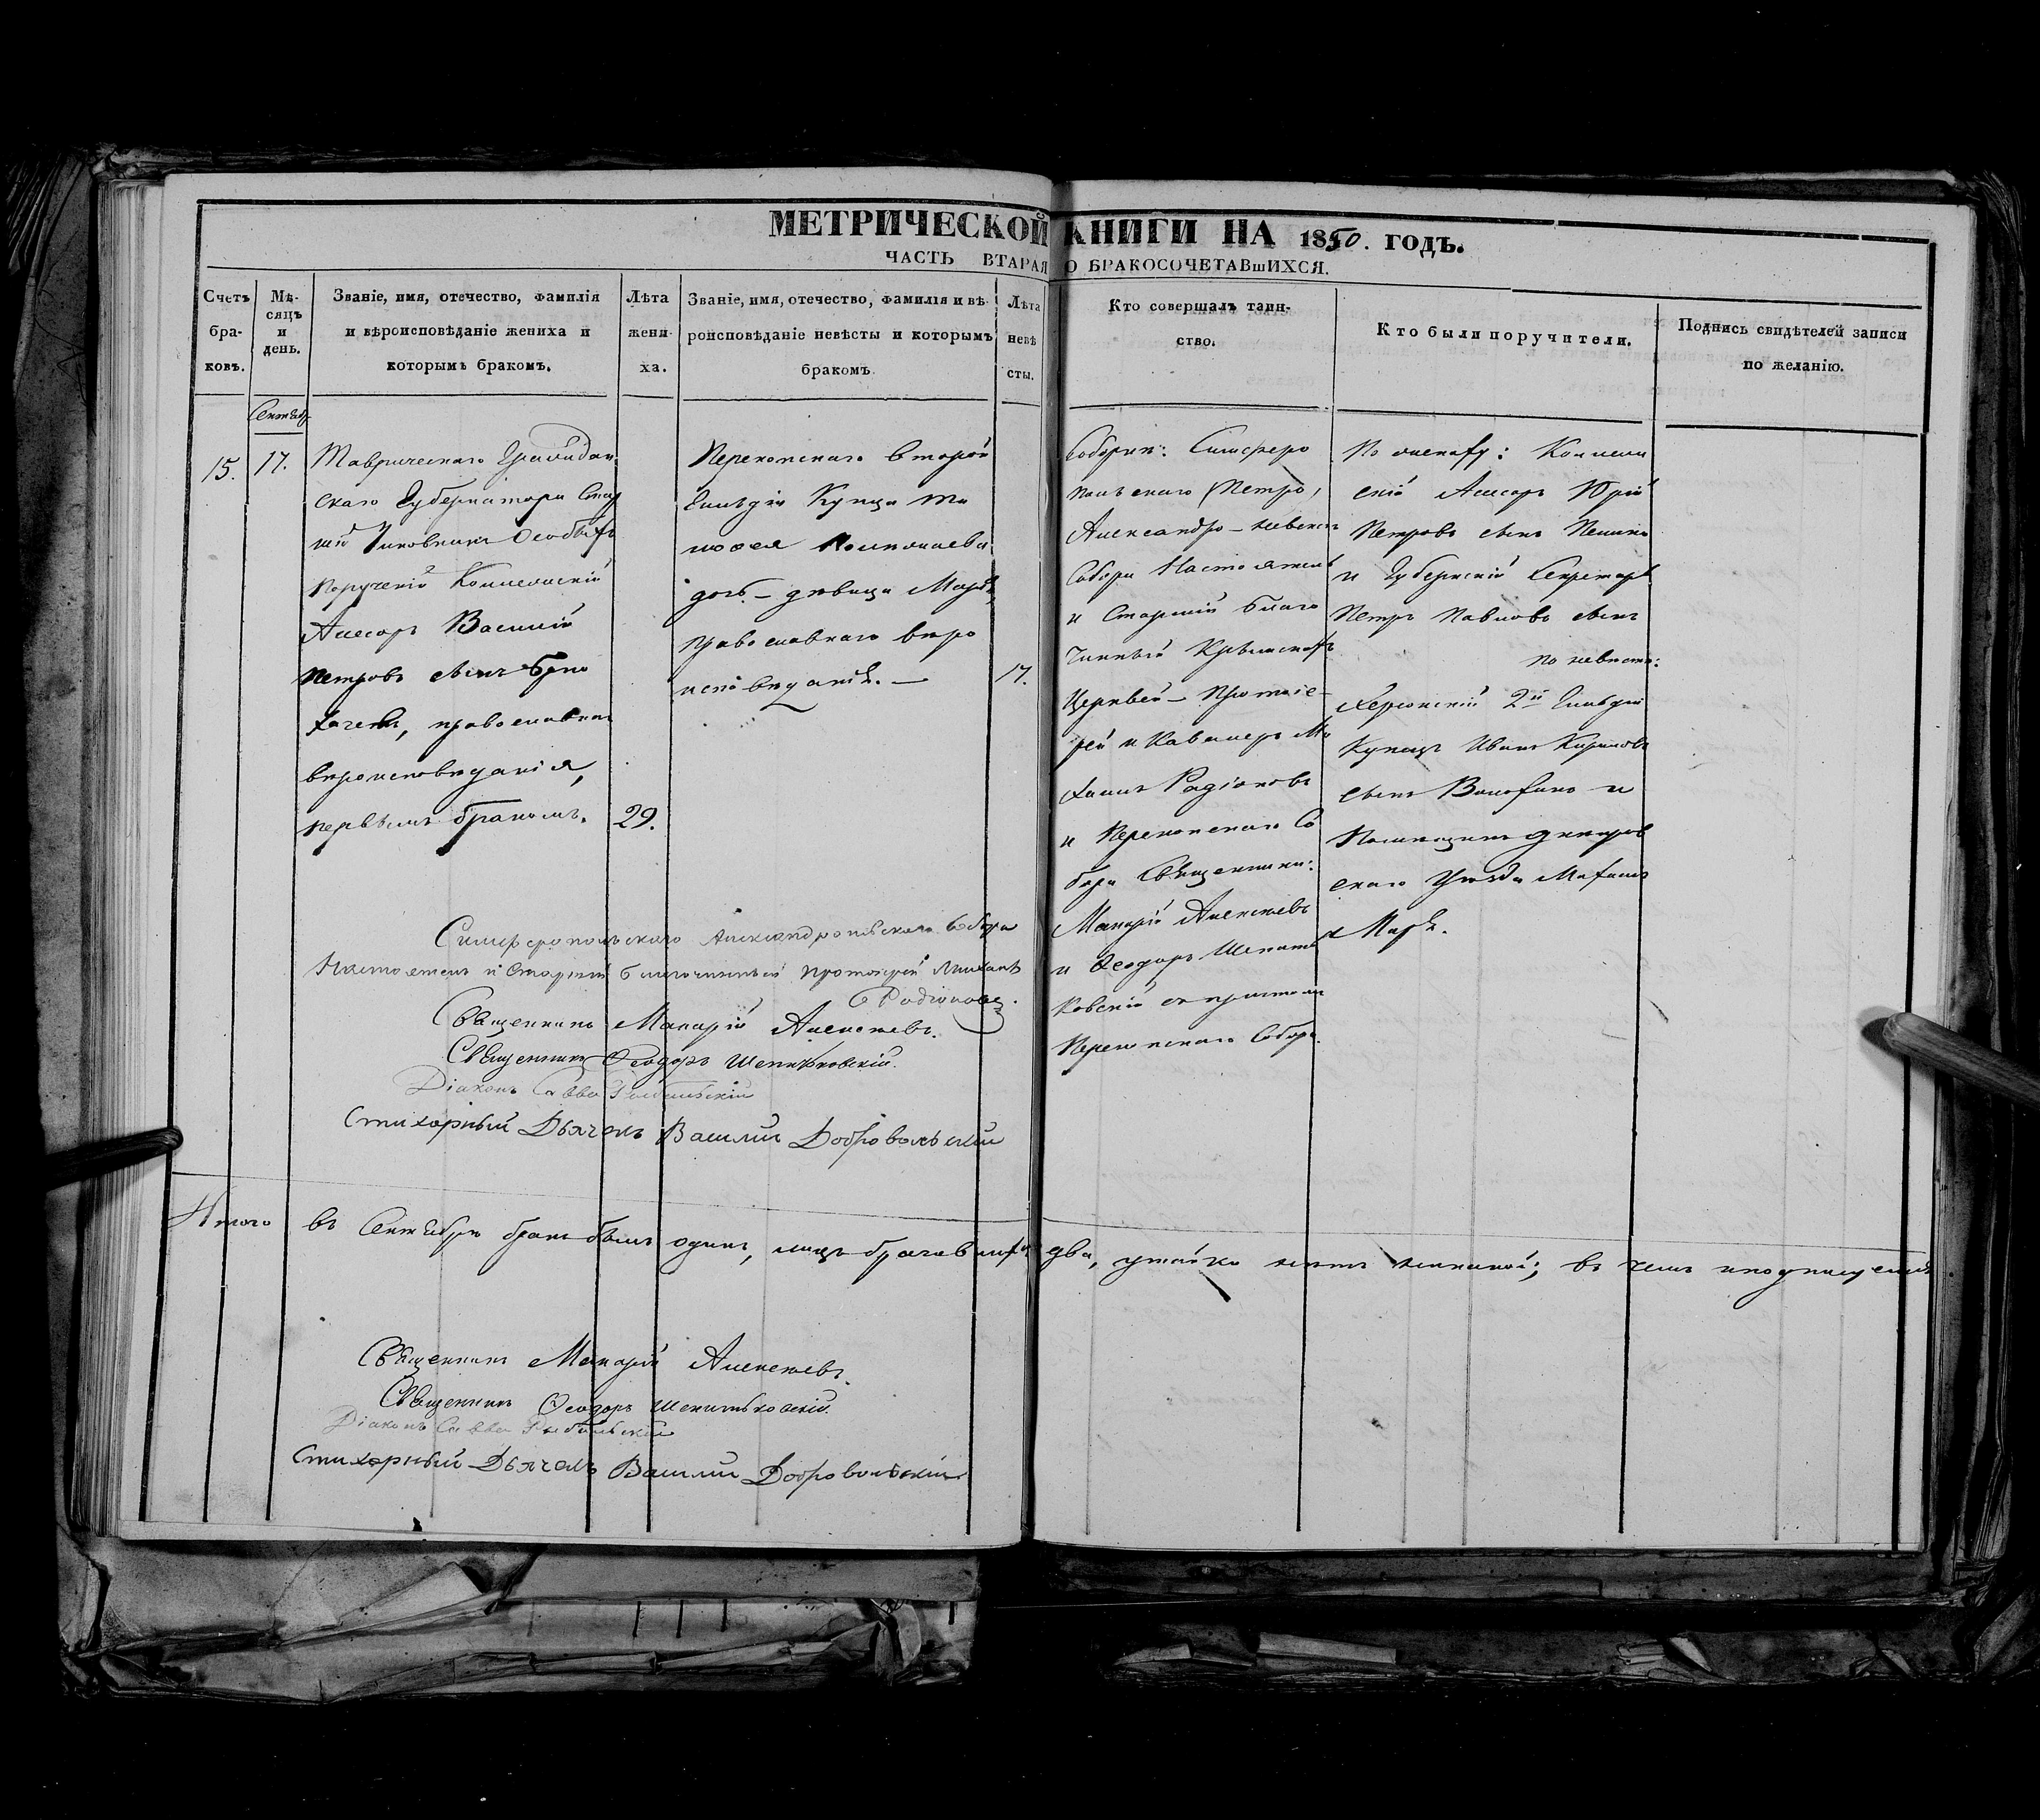 МЕТРИЧЕСКОЙ КНИГИ НА 1850. ГОДЪ.
ЧАСТЬ ВТАРАЯ О БРАКОСОЧЕТАВшИХСЯ.
Счетъ бра-ковъ.
Мѣ-сяцъ и день.
Званіе, имя, отечество, фамилія
и вѣроисповѣданіе жениха и
которымъ бракомъ.
Лѣта жени-ха.
Званіе, имя, отечество, фамилія и вѣ-
роисповѣданіе невѣсты и которымъ
бракомъ.
Лѣта невѣ сты.
Кто совершалъ таин-
ство.
Кто были поручители.
Подпись свидѣтелей записи
по желанію.
Сентябр
15.
17.
Таврическаго Граждан
скаго Губернатора Стар
шій Чиновникъ Особыхъ
Порученій Коллежскій
Ассесоръ Василій
Петровъ сынъ
православнаго
вѣроисповѣданія,
первымъ бракомъ.
29.
Перекопскаго второй
Гильдіи Купца Ти
мофея
дочь - дѣвица Марія,
православнаго вѣро
исповѣданія. —
17.
Соборнѣ: Симферо
польскаго
Александро-Невскаго
Собора Настоятель
и Старшій Благо
чинный Крымскихъ
Церквей - Протоіе-
рей и Кавалеръ Ми
хаилъ Родіоновъ
и Перекопскаго Со
бора Священники:
Макарій Алексѣевъ
и Ѳеодоръ Шепить
ковскій съ причтомъ
Перекопскаго Собора.
По женихѣ: Коллеж
скій Ассесоръ Юрій
Петровъ сынъ
и Губернскій Секретарь
Петръ Павловъ сынъ
по невѣстѣ:
Херсонскій 2й Гильдіи
Купецъ Иванъ Кириловъ
сынъ и
Помѣщикъ Днѣпров
скаго Уѣзда
Симферопольскаго Александроневскаго Собора
Настоятель и Старшій благочинный протоіерей Михаилъ
Родіоновъ.
Священникъ Макарій Алексѣевъ.
Священникъ Ѳеодоръ Шепитьковскій.
Діаконъ Савва Рыбальскій
Стихарный Дьячекъ Василій Добровольскій
Итого въ Сентябрѣ бракъ былъ одинъ, лицъ брачившихся два, утайки нѣтъ никакой; въ чемъ и подписуемся
Священникъ Макарій Алексѣевъ.
Священникъ Ѳеодоръ Шепитьковскій.
Діаконъ Савва Рыбальскій
Стихарный Дьячекъ Василій Добровольскій